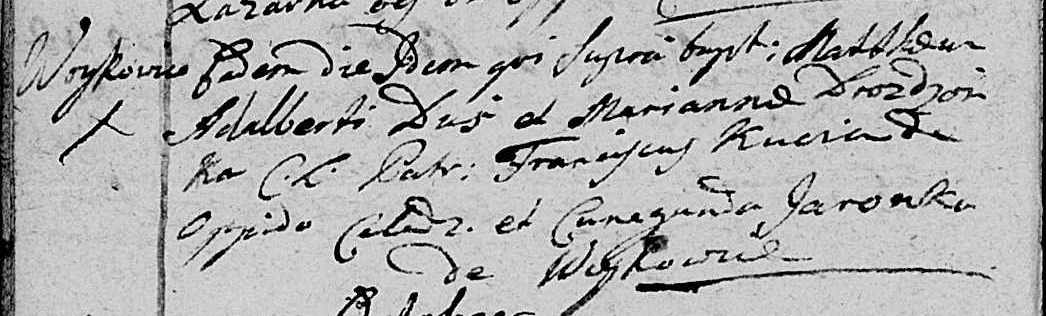 Lazarka
Woykowice Eadem die Idem qui supra bapt: Matthæum
Adalberti Duś et Marianne Drozdzon
ka C. L. Patr: Franciscus Kucia de
oppido Celadz. et Cunegunda Jaronka
de Woykowice